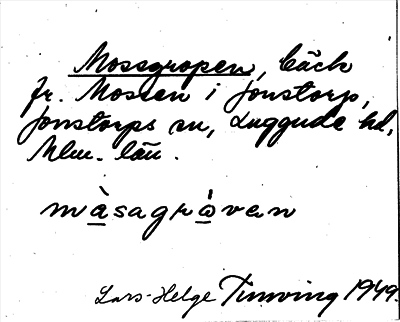 Mossgropen, bäck
fr. Mossen i Jonstorp,
Jonstorps sn, Luggude hd,
Mlm. län.
må̱sagrå̱van
Lars-Helge Timving 1949.